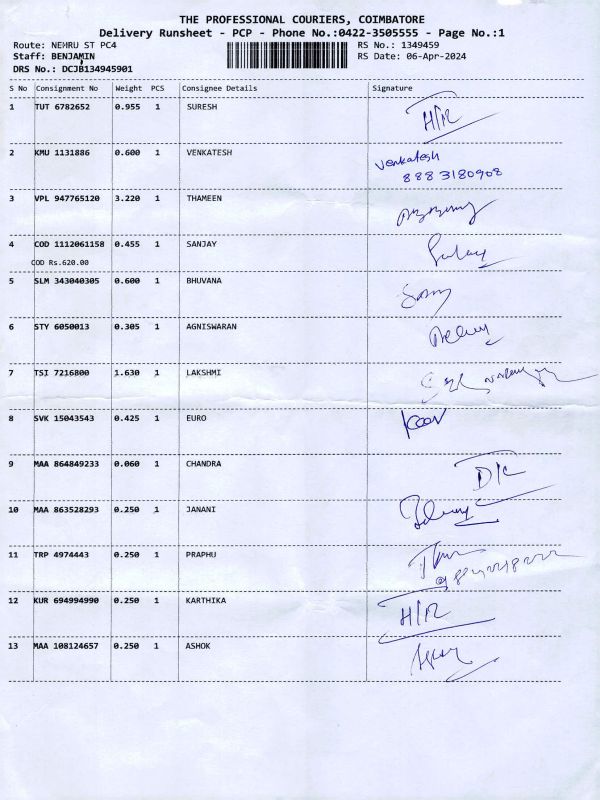 THE PROFESSIONAL COURIERS, COIMBATORE
Delivery Runsheet - PCP - Phone No.:0422-3505555 - Page No.:1
Route: NEHRU ST PC4 RS No.: 1349459
Staff: BENJAMIN RS Date: 06-Apr-2024
DRS No.: DCJB134945901
S No Consignment No Weight PCS Consignee Details Signature
1 TUT 6782652 0.955 1 SURESH H/R
2 KMU 1131886 0.600 1 VENKATESH Venkatesh
8883180908
3 VPL 947765120 3.220 1 THAMEEN
4 COD 1112061158 0.455 1 SANJAY
COD Rs.620.00
5 SLM 343040305 0.600 1 BHUVANA
6 STY 6050013 0.305 1 AGNISWARAN
7 TSI 7216800 1.630 1 LAKSHMI
8 SVK 15043543 0.425 1 EURO
9 MAA 864849233 0.060 1 CHANDRA D/C
10 MAA 863528293 0.250 1 JANANI
11 TRP 4974443 0.250 1 PRAPHU
12 KUR 694994990 0.250 1 KARTHIKA H/R
13 MAA 108124657 0.250 1 ASHOK